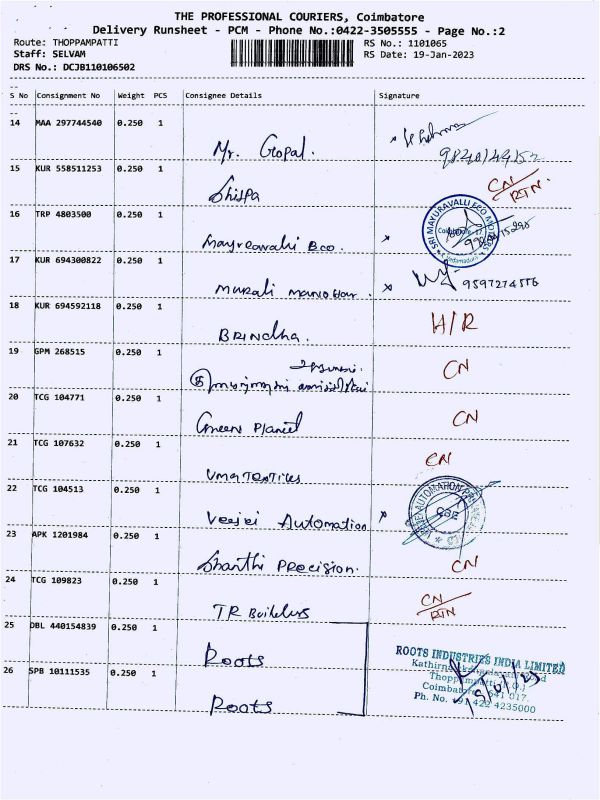 THE PROFESSIONAL COURIERS, Coimbatore
Delivery Runsheet - PCM - Phone No.:0422-3505555 - Page No.:2
Route: THOPPAMPATTI RS No.: 1101065
Staff: SELVAM RS Date: 19-Jan-2023
DRS No.: DCJB110106502
S No Consignment No Weight PCS Consignee Details Signature
14 MAA 297744540 0.250 1
Mr. Gopal.
15 KUR 558511253 0.250 1
Shilpa CN/RTN.
16 TRP 4803500 0.250 1
SRI MAYURAVALLI ECO
Coimbatore
17 KUR 694300822 0.250 1
Murali Manohar. 9597274556
18 KUR 694592118 0.250 1
BRindha. H/R
19 GPM 268515 0.250 1
CN
20 TCG 104771 0.250 1
Greens Planet CN
21 TCG 107632 0.250 1
Uma Textiles CN
22 TCG 104513 0.250 1
Veejei Automation
CBE
23 APK 1201984 0.250 1
Shanthi Precision. CN
24 TCG 109823 0.250 1
TR Builders CN/RTN
25 DBL 440154839 0.250 1
Roots
ROOTS INDUSTRIES INDIA LIMITED
26 SPB 10111535 0.250 1
Thoppampatti (P.O.)
Coimbatore 641 017.
Ph. No. +91 422 4235000
Roots